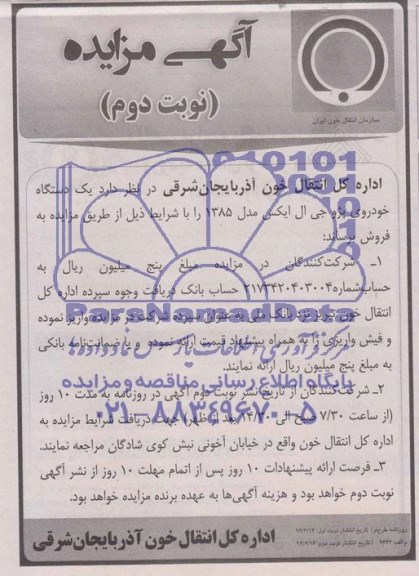 آگهی مزایده
(نوبت دوم)
سازمان انتقال خون ایران
اداره کل انتقال خون آذربایجان‌شرقی در نظر دارد یک دستگاه
خودروی پژو جی ال ایکس مدل ۱۳۸۵ را با شرایط ذیل از طریق مزایده به
فروش برساند:
۱ـ شرکت‌کنندگان در مزایده مبلغ پنج میلیون ریال به
حساب‌شماره ۲۱۷۳۴۲۰۴۰۳۰۰۴ حساب بانک دریافت وجوه سپرده اداره کل
انتقال خون تبریز نزد بانک ملی به عنوان سپرده شرکت در مزایده واریز نموده
و فیش واریزی را به همراه پیشنهاد قیمت ارائه نموده و یا ضمانت‌نامه بانکی
به مبلغ پنج میلیون ریال ارائه نمایند.
۲ـ شرکت‌کنندگان از تاریخ نشر نوبت دوم آگهی در روزنامه به مدت ۱۰ روز
(از ساعت ۷/۳۰ صبح الی ۱۴/۳۰ بعد از ظهر) جهت دریافت شرایط مزایده به
اداره کل انتقال خون واقع در خیابان آخونی نبش کوی شادگان مراجعه نمایند.
۳ـ فرصت ارائه پیشنهادات ۱۰ روز پس از اتمام مهلت ۱۰ روز از نشر آگهی
نوبت دوم خواهد بود و هزینه آگهی‌ها به عهده برنده مزایده خواهد بود.
اداره کل انتقال خون آذربایجان شرقی
ParsNamadData
مرکز فرآوری اطلاعات پارس نماد داده‌ها
پایگاه اطلاع رسانی مناقصه و مزایده
۰۲۱-۸۸۳۴۹۶۷۰-۵